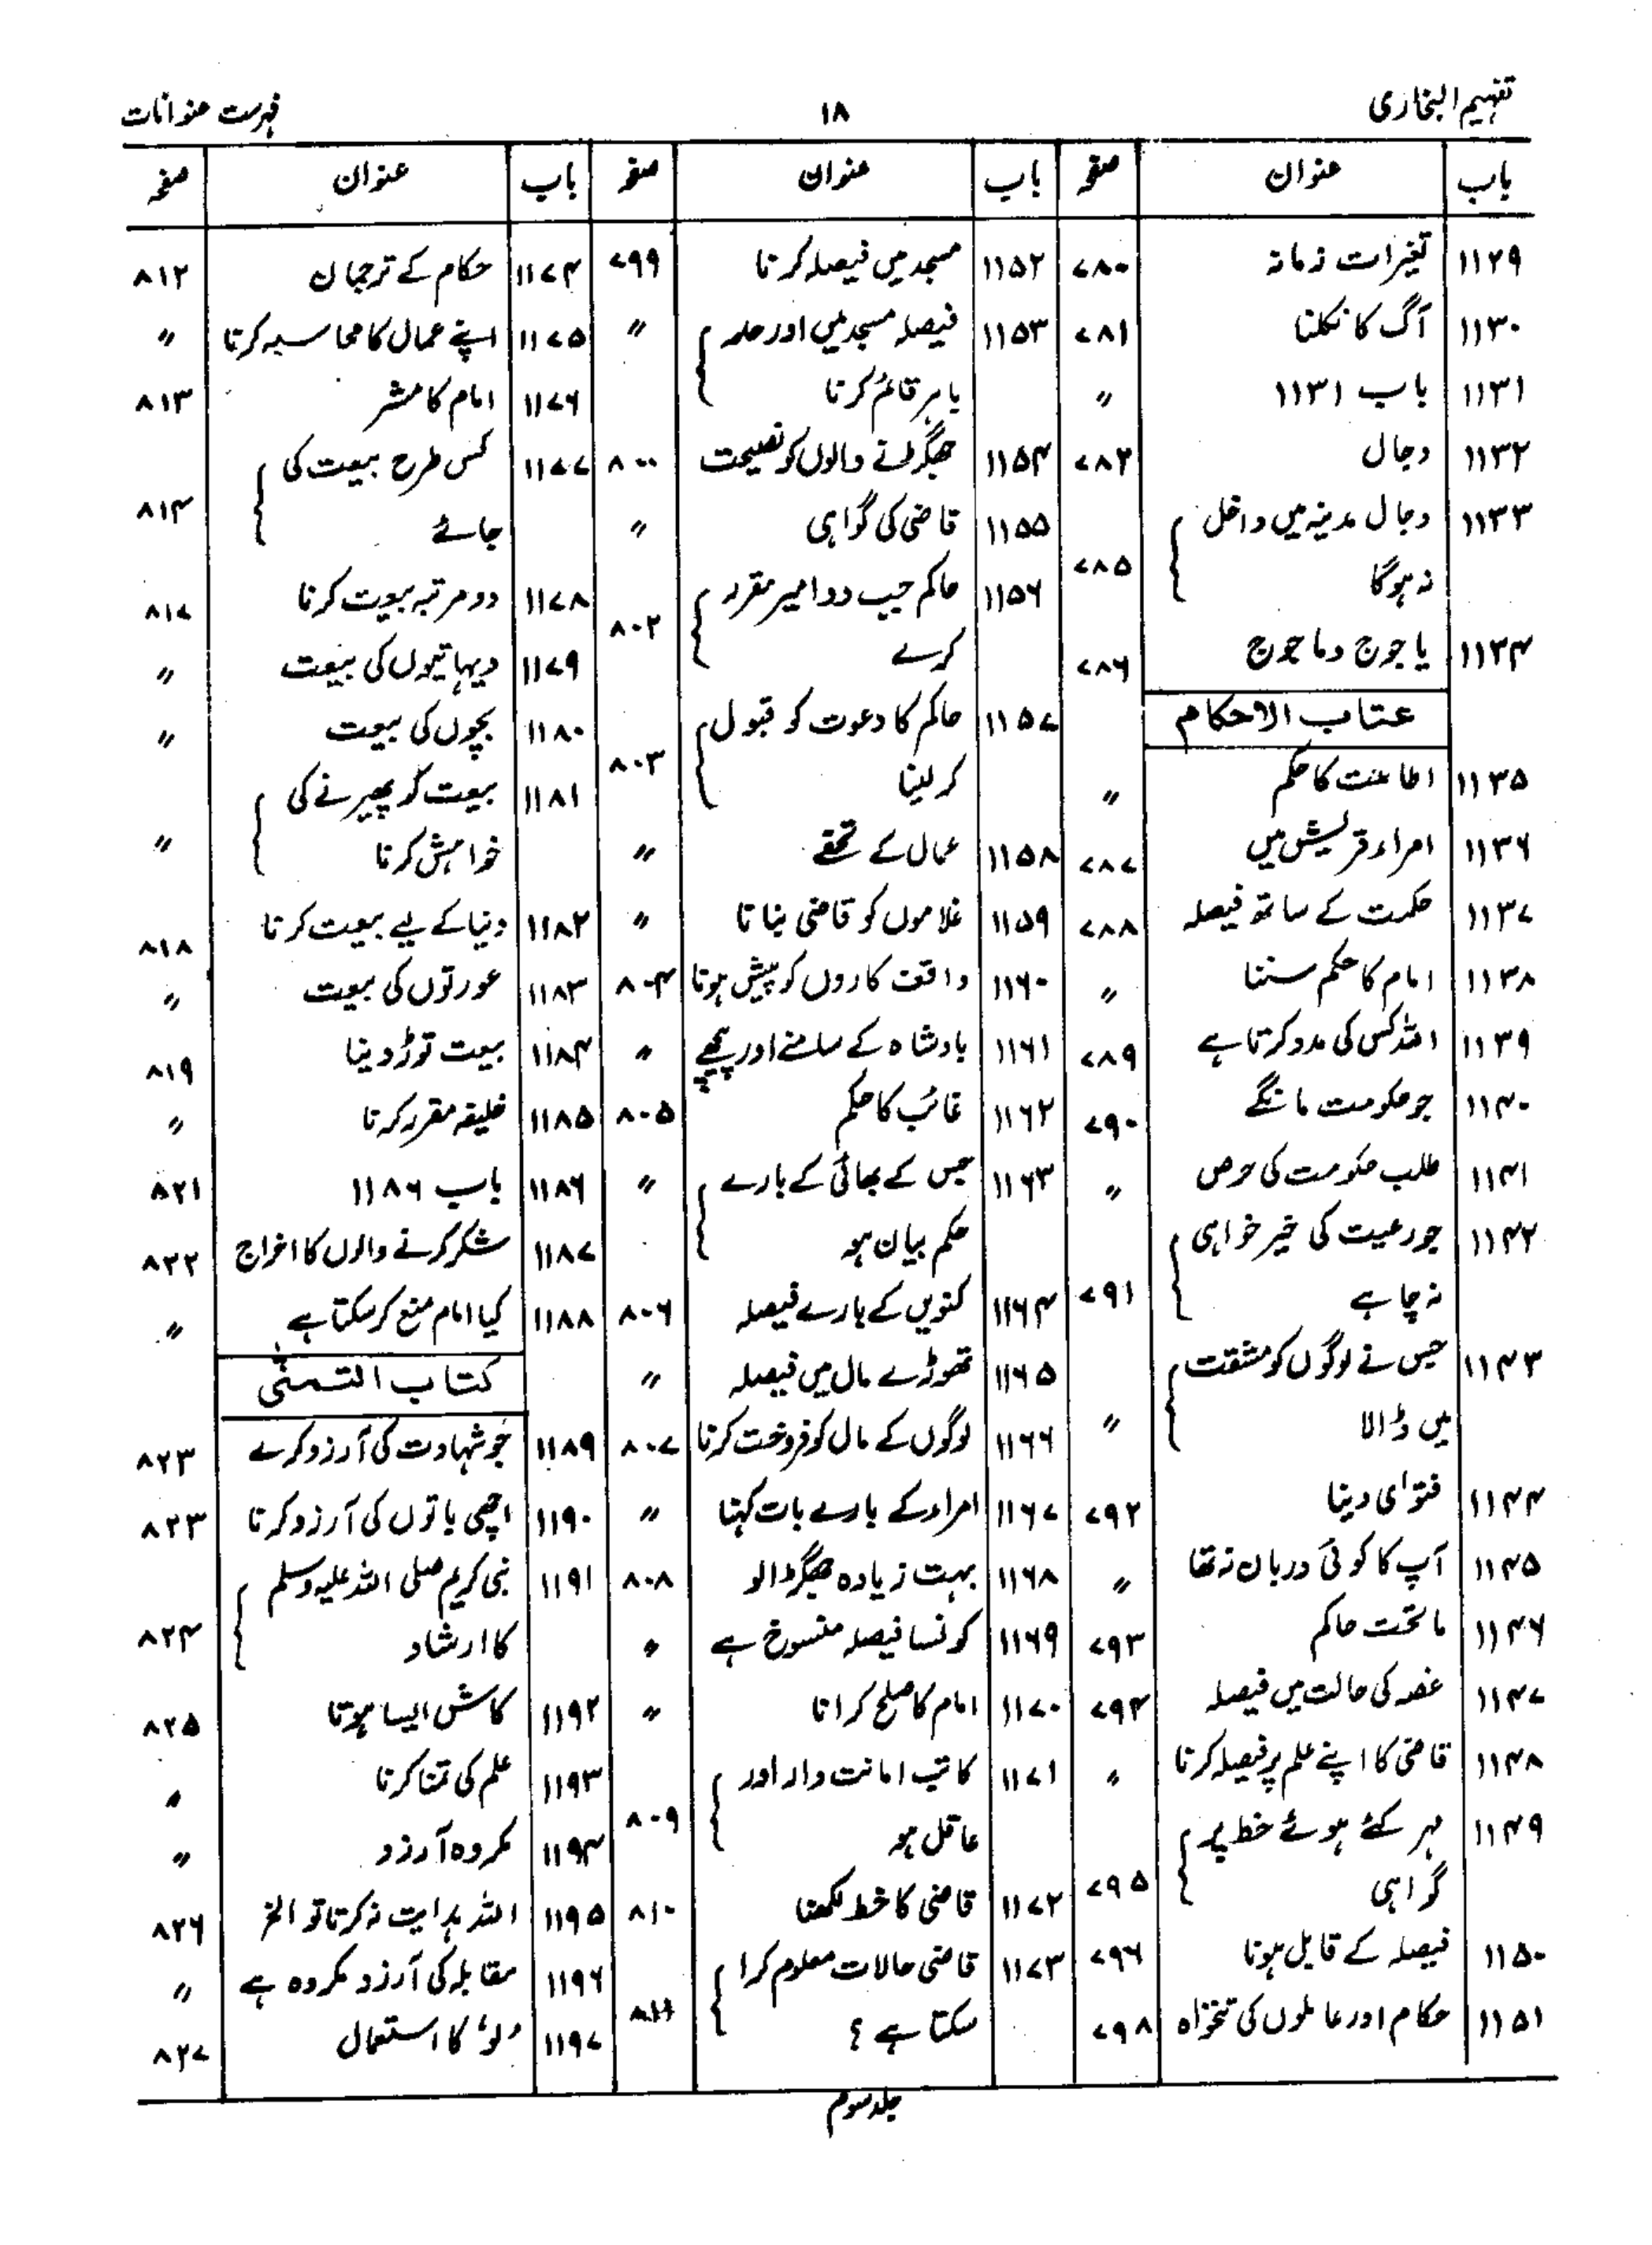 تفہیم البخاری ۱۸ فہرست عنوانات
باب عنوان صفحہ
۱۱۲۹ تغیرات زمانہ ۷۸۰
۱۱۳۰ آگ کا نکلنا ۷۸۱
۱۱۳۱ باب ۱۱۳۱ ״
۱۱۳۲ دجال ۷۸۲
۱۱۳۳ دجال مدینہ میں داخل
نہ ہوگا ۷۸۵
۱۱۳۴ یاجوج وماجوج ۷۸۶
عتاب الاحکام
۱۱۳۵ اطاعت کا حکم ״
۱۱۳۶ امراء قریش میں ۷۸۷
۱۱۳۷ حکمت کے ساتھ فیصلہ ۷۸۸
۱۱۳۸ امام کا حکم سننا ״
۱۱۳۹ اللہ کس کی مدد کرتا ہے ۷۸۹
۱۱۴۰ جو حکومت مانگے ۷۹۰
۱۱۴۱ طلب حکومت کی حرص ״
۱۱۴۲ جو رعیت کی خیر خواہی
نہ چاہے ۷۹۱
۱۱۴۳ جس نے لوگوں کو مشقت
میں ڈالا ״
۱۱۴۴ فتوٰی دینا ۷۹۲
۱۱۴۵ آپ کا کوئی دربان نہ تھا ״
۱۱۴۶ ماتحت حاکم ۷۹۳
۱۱۴۷ غصہ کی حالت میں فیصلہ ۷۹۴
۱۱۴۸ قاضی کا اپنے علم پر فیصلہ کرنا ״
۱۱۴۹ مہر کئے ہوئے خط پر
گواہی ۷۹۵
۱۱۵۰ فیصلہ کے قابل ہونا ۷۹۶
۱۱۵۱ حکام اور عاملوں کی تنخواہ ۷۹۸
باب عنوان صفحہ
۱۱۵۲ مسجد میں فیصلہ کرنا ۷۹۹
۱۱۵۳ فیصلہ مسجد میں اور حد
باہر قائم کرنا ״
۱۱۵۴ جھگڑنے والوں کو نصیحت ۸۰۰
۱۱۵۵ قاضی کی گواہی ״
۱۱۵۶ حاکم جب دو امیر مقرر
کرے ۸۰۲
۱۱۵۷ حاکم کا دعوت کو قبول
کر لینا ۸۰۳
۱۱۵۸ عمال کے تحفے ״
۱۱۵۹ غلاموں کو قاضی بنانا ״
۱۱۶۰ واقف کاروں کو پیش ہونا ۸۰۴
۱۱۶۱ بادشاہ کے سامنے اور پیچھے ״
۱۱۶۲ غائب کا حکم ۸۰۵
۱۱۶۳ جس کے بھائی کے بارے
حکم بیان ہو ״
۱۱۶۴ کنویں کے بارے فیصلہ ۸۰۶
۱۱۶۵ تھوڑے مال میں فیصلہ ״
۱۱۶۶ لوگوں کے مال کو فروخت کرنا ۸۰۷
۱۱۶۷ امراء کے بارے بات کہنا ״
۱۱۶۸ بہت زیادہ جھگڑالو ۸۰۸
۱۱۶۹ کونسا فیصلہ منسوخ ہے ״
۱۱۷۰ امام کا صلح کرانا ״
۱۱۷۱ کاتب امانت دار اور
عاقل ہو ۸۰۹
۱۱۷۲ قاضی کا خط لکھنا ۸۱۰
۱۱۷۳ قاضی حالات معلوم کرا
سکتا ہے ؟ ۸۱۱
باب عنوان صفحہ
۱۱۷۴ حکام کے ترجمان ۸۱۲
۱۱۷۵ اپنے عمال کا محاسبہ کرنا ״
۱۱۷۶ امام کا مشر ۸۱۳
۱۱۷۷ کس طرح بیعت کی
جائے ۸۱۴
۱۱۷۸ دو مرتبہ بیعت کرنا ۸۱۷
۱۱۷۹ دیہاتیوں کی بیعت ״
۱۱۸۰ بچوں کی بیعت ״
۱۱۸۱ بیعت کو پھیرنے کی
خواہش کرنا ״
۱۱۸۲ دنیا کے لیے بیعت کرنا ۸۱۸
۱۱۸۳ عورتوں کی بیعت ״
۱۱۸۴ بیعت توڑ دینا ۸۱۹
۱۱۸۵ خلیفہ مقرر کرنا ״
۱۱۸۶ باب ۱۱۸۶ ۸۲۱
۱۱۸۷ شکر کرنے والوں کا اخراج ۸۲۲
۱۱۸۸ کیا امام منع کر سکتا ہے ״
کتاب التمنّی
۱۱۸۹ جو شہادت کی آرزو کرے ۸۲۳
۱۱۹۰ اچھی باتوں کی آرزو کرنا ۸۲۳
۱۱۹۱ نبی کریم صلی اللہ علیہ وسلم
کا ارشاد ۸۲۴
۱۱۹۲ کاش ایسا ہوتا ۸۲۵
۱۱۹۳ علم کی تمنا کرنا ״
۱۱۹۴ مکروہ آرزو ״
۱۱۹۵ اللہ ہدایت نہ کرتا تو الخ ۸۲۶
۱۱۹۶ مقابلہ کی آرزو مکروہ ہے ״
۱۱۹۷ ’لو‘ کا استعمال ۸۲۷
جلد سوم